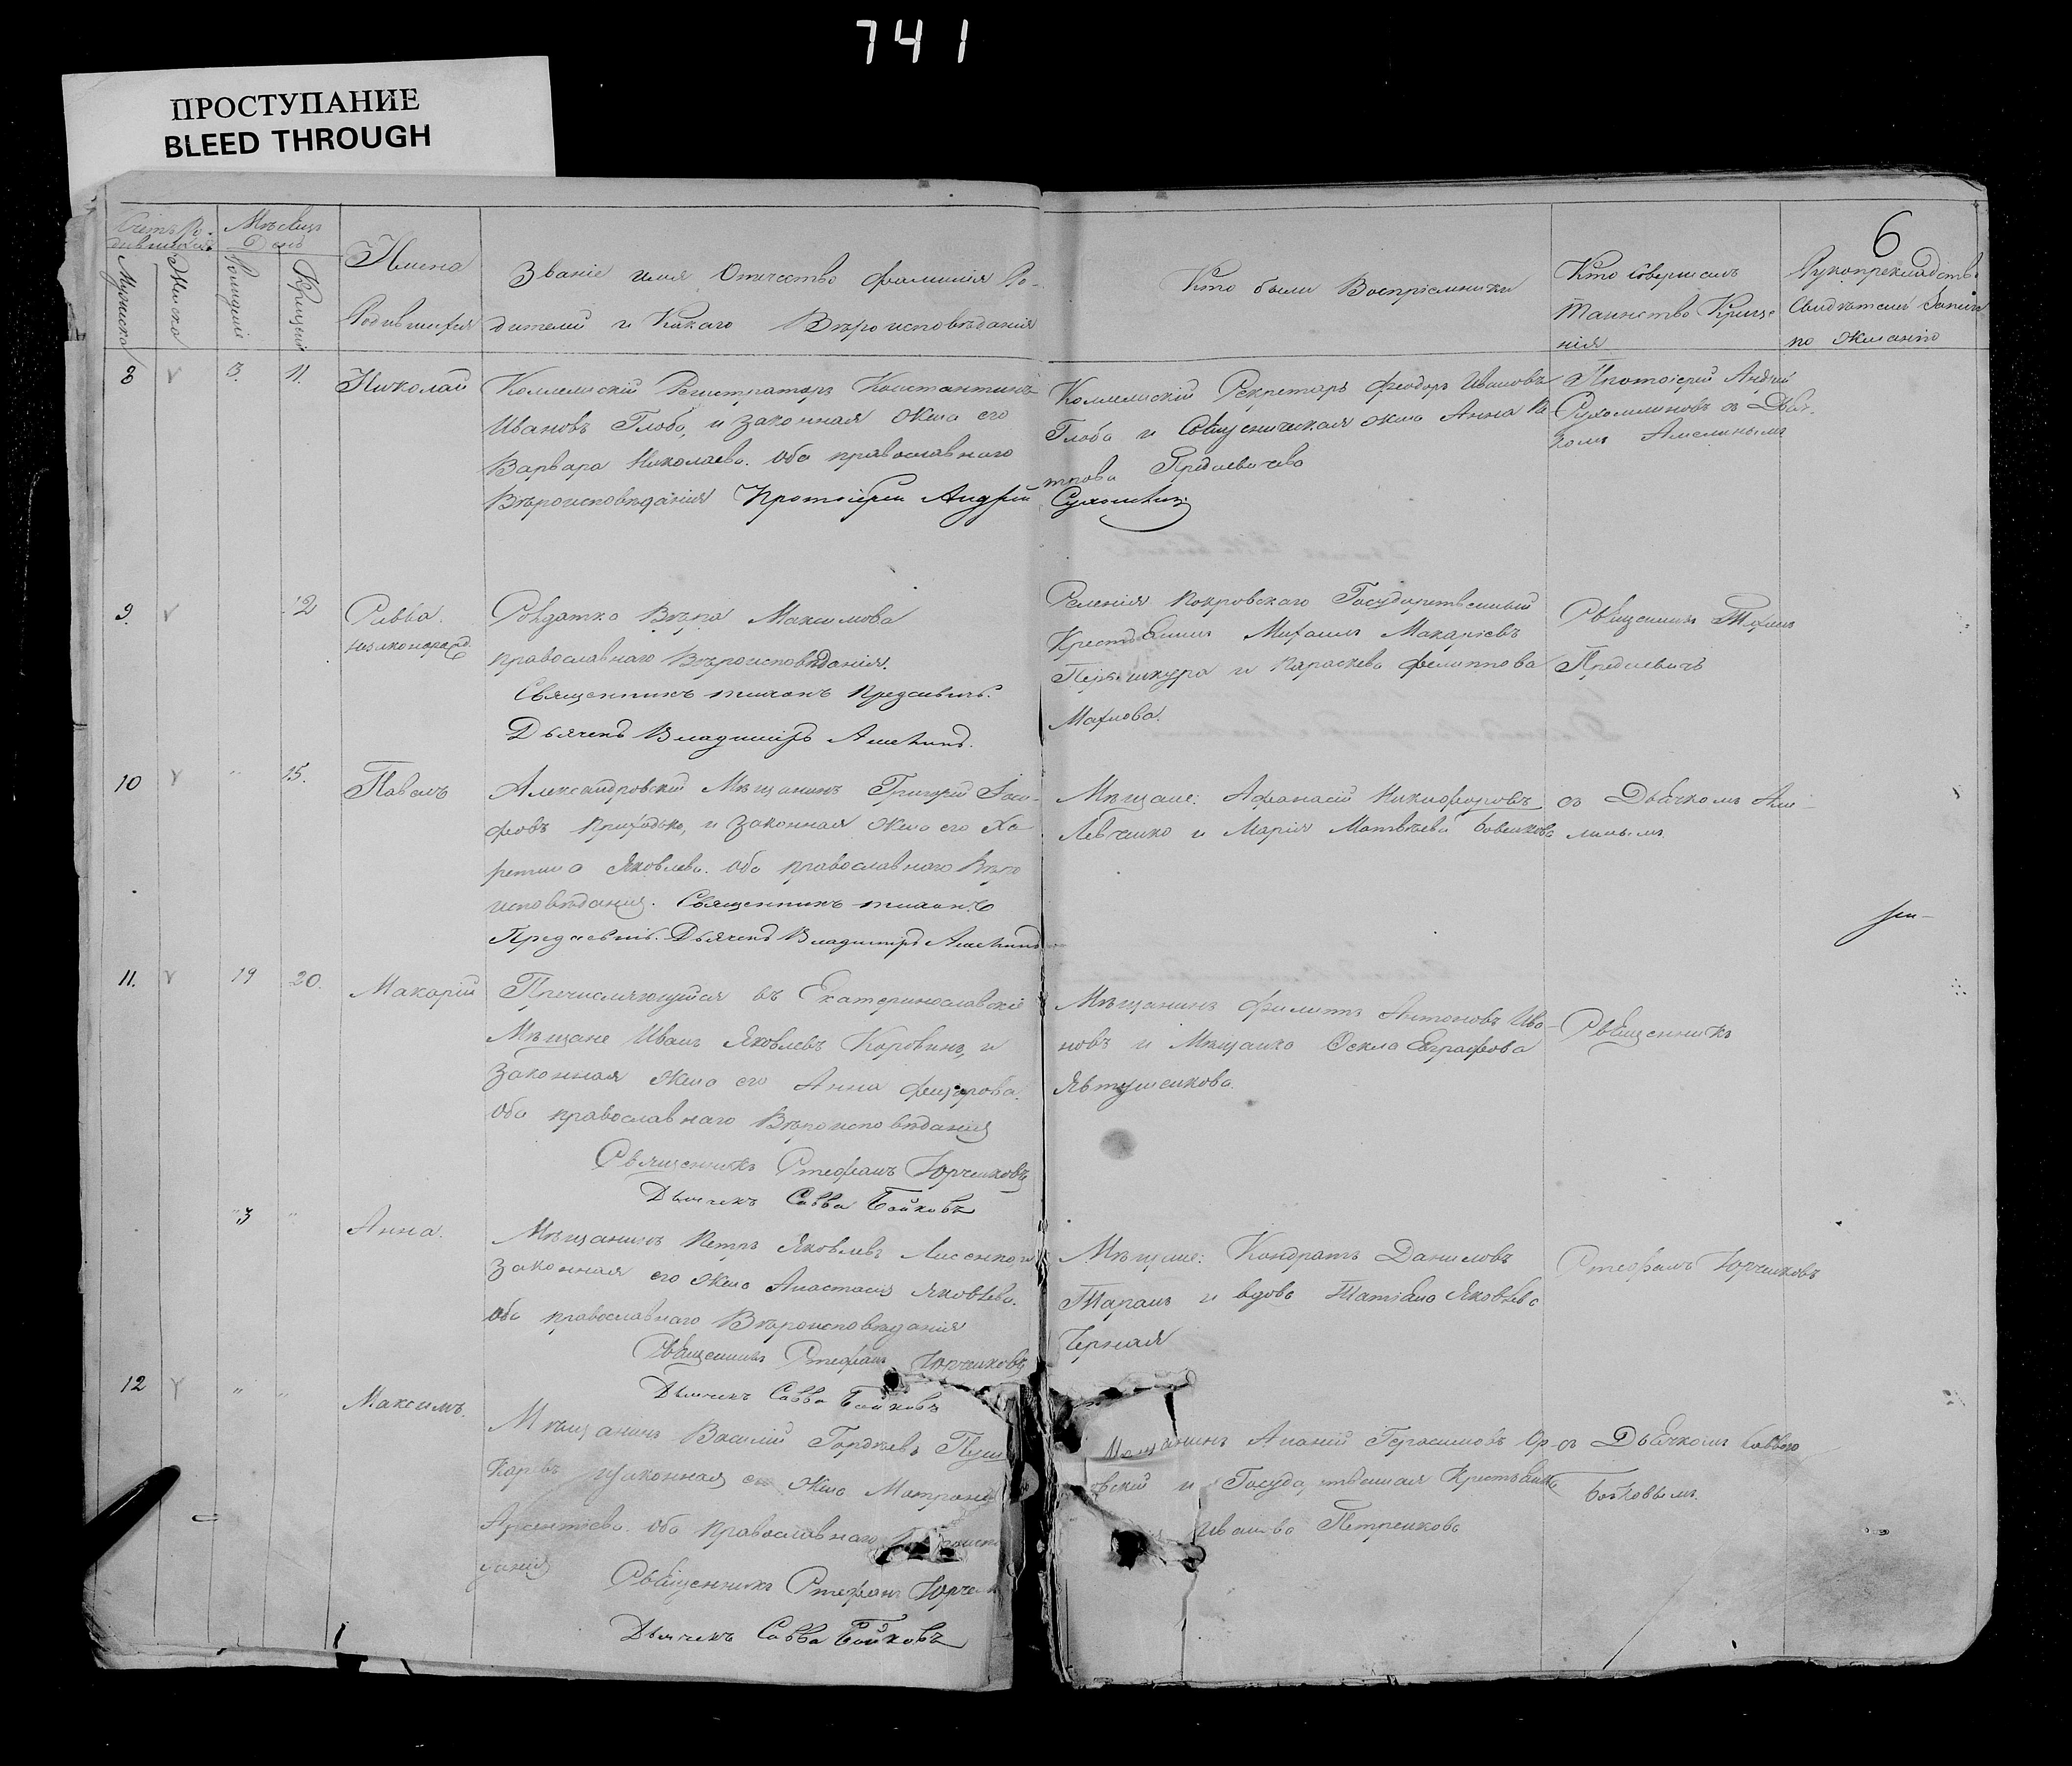 741
ПРОСТУПАНИЕ
BLEED THROUGH
6
Счетъ Ро-
дившихся
Мѣсяцъ
День
Мужеска
Женска
Рожденіе
Крещеніе
Имена
Родившихся
Званіе имя Отчество фамилія Ро-
дителей и Какаго Вѣроисповѣданія
Кто были Воспріемники
Кто совершалъ
Таинство Креще
нія
Рукоприкладство
Свидѣтелей Записи
по Желанію
8 3. 11. Николай
Коллежскій Регистраторъ Константинъ
Ивановъ Глоба, и законная Жена его
Варвара Николаева. оба православнаго
Вѣроисповѣданія Протоіерей Андрей
Коллежскій Секретарь Феодоръ Ивановъ
Глоба и Священническая жена Анна
Предоевичева
Протоіерей Андрей
съ Дьяч-
комъ Амелинымъ
9. 12 Савва.
Солдатка Вѣра Максимова
православнаго Вѣроисповѣданія.
Священникъ Тихонъ
Дьячекъ Владимиръ
Селенія Покровскаго Государственный
Крестьянинъ Михаилъ Макаріевъ
и Параскева Филиппова
Махнова.
Священникъ Тихонъ
10 " 15. Павелъ
Александровскій Мѣщанинъ Григорій Іоси-
фовъ Приходько, и законная Жена его Ха-
ритина Яковлева. оба православнаго Вѣро
исповѣданія. Священникъ Тихонъ
Дьячекъ Владимиръ
Мѣщане: Афанасій Никифоровъ
Левченко и Марія Матвѣева
съ Дьячкомъ Аме-
линымъ
11. 19 20. Макарій
Перечисляющійся въ Екатеринославскіе
Мѣщане Иванъ Яковлевъ Коровинъ, и
Законная Жена его Анна
оба православнаго Вѣроисповѣданія
Священникъ Стефанъ Юрченковъ
Дьячекъ Савва Бойковъ
Мѣщанинъ Филиппъ Антоновъ Ива-
новъ и Мѣщанка Евграфова
Явтушенкова.
Священникъ
3 " Анна.
Мѣщанинъ Петръ Яковлевъ Лисенко, и
законная его Жена Анастасія Яковлева.
оба православнаго Вѣроисповѣданія
Священникъ Стефанъ Юрченковъ
Дьячекъ Савва Бойковъ
Мѣщане: Кондратъ Даниловъ
Таранъ и вдова Татіана Яковлева
Черная
Стефанъ Юрченковъ
12 " " Максимъ.
Мѣщанинъ Василій Гордѣевъ
законная его Жена Матрона
оба Православнаго
Священникъ Стефанъ
Дьячекъ Савва Бойковъ
Мѣщанинъ Ананій Герасимовъ
и
Иванова Петренкова
съ Дьячкомъ Саввою
Бойковымъ.